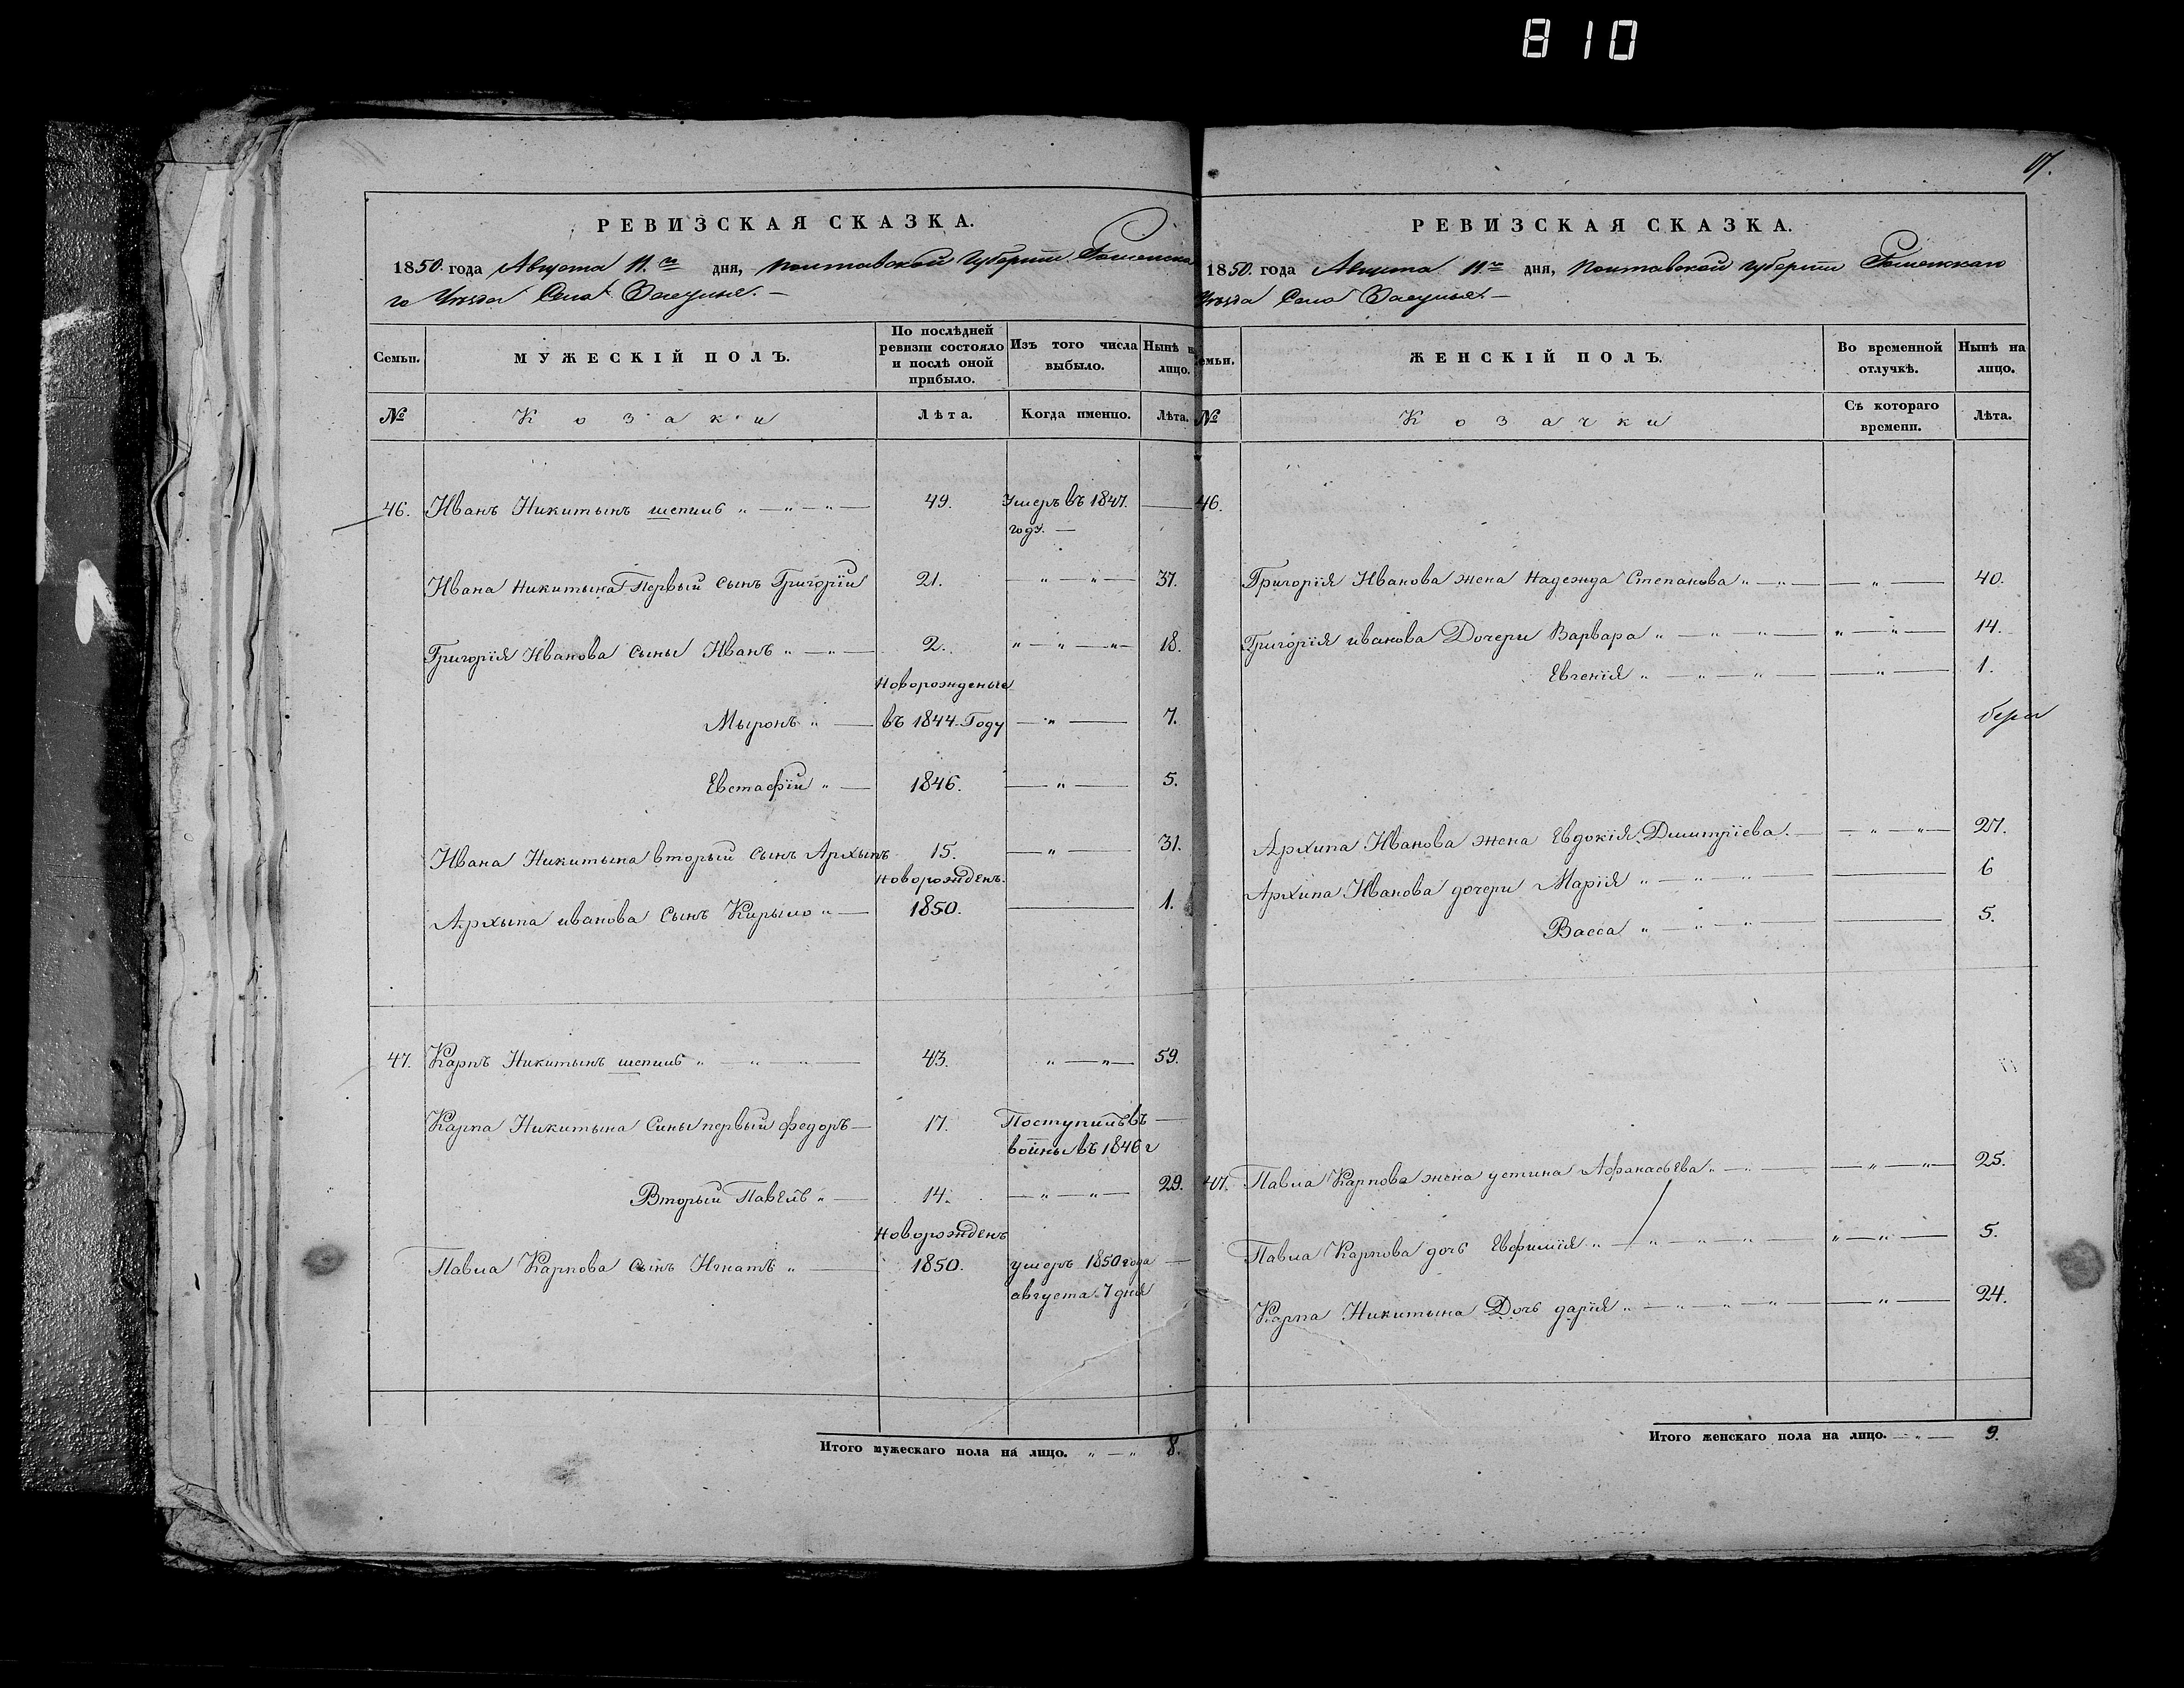 810
17.
РЕВИЗСКАЯ СКАЗКА.
1850. года Августа 11.го дня, Полтавской Губернiи Роменска
го Уезда Села Засулья. —
Семьи.
МУЖЕСКІЙ ПОЛЪ.
По послѣдней ревизіи состояло и послѣ оной прибыло.
Изъ того числа выбыло.
Нынѣ на лицо.
№
Козаки
Лѣта.
Когда именно.
Лѣта.
46. Иванъ Никитынъ шепиль „ — „ — „ — 49. Умеръ въ 1847. —
году. —
Ивана Никитына Первый сынъ Григорій 21. — „ — „ — 37.
Григорія Иванова сыны Иванъ „ — „ — 2. „ — „ — „ — 18.
Новорожденые
Мыронъ „ — въ 1844. Году — „ — 7.
Евстафій „ — 1846. — „ — 5.
Ивана Никитына вторый сынъ Архыпъ 15. — „ — 31.
Новорожденъ.
Архыпа иванова сынъ Кирыло „ — 1850. — 1.
47. Карпъ Никитынъ шепиль „ — „ — „ — 43. „ — „ — 59.
Карпа Никитына Сины первый федоръ — 17. Поступилъ въ —
войны въ 1846 г
Вторый Павелъ „ — 14. — „ — „ — 29.
Новорожденъ
Павла Карпова сынъ Игнатъ „ — 1850. умеръ 1850 года —
августа 7 дня
Итого мужескаго пола на лицо. „ — „ 8.
РЕВИЗСКАЯ СКАЗКА.
1850. года Августа 11.го дня, Полтавской губернiи Роменскаго
Уезда Села Засулья. —
Семьи.
ЖЕНСКІЙ ПОЛЪ.
Во временной отлучкѣ.
Нынѣ на лицо.
№
Козачки
Съ котораго времени.
Лѣта.
46.
Григорія Иванова жена Надежда Степанова „ — „ — — „ — 40.
Григорія иванова Дочери Варвара „ — „ — „ — „ — „ — 14.
Евгенія „ — „ — „ — — „ — 1.
Архипа Иванова жена Евдокія Дмитріева. — — „ — „ — 27.
Архипа Иванова дочери Марія „ — „ — „ — — 6
Васса „ — „ — „ — — 5.
47. Павла Карпова жена устина Афанасьева „ — „ — — „ — „ — 25.
Павла Карпова дочь Евфимія „ — „ — „ — „ — „ — „ — 5.
Карпа Никитына Дочь дарія „ — „ — „ — „ — — „ — 24.
Итого женскаго пола на лицо. — „ — 9.